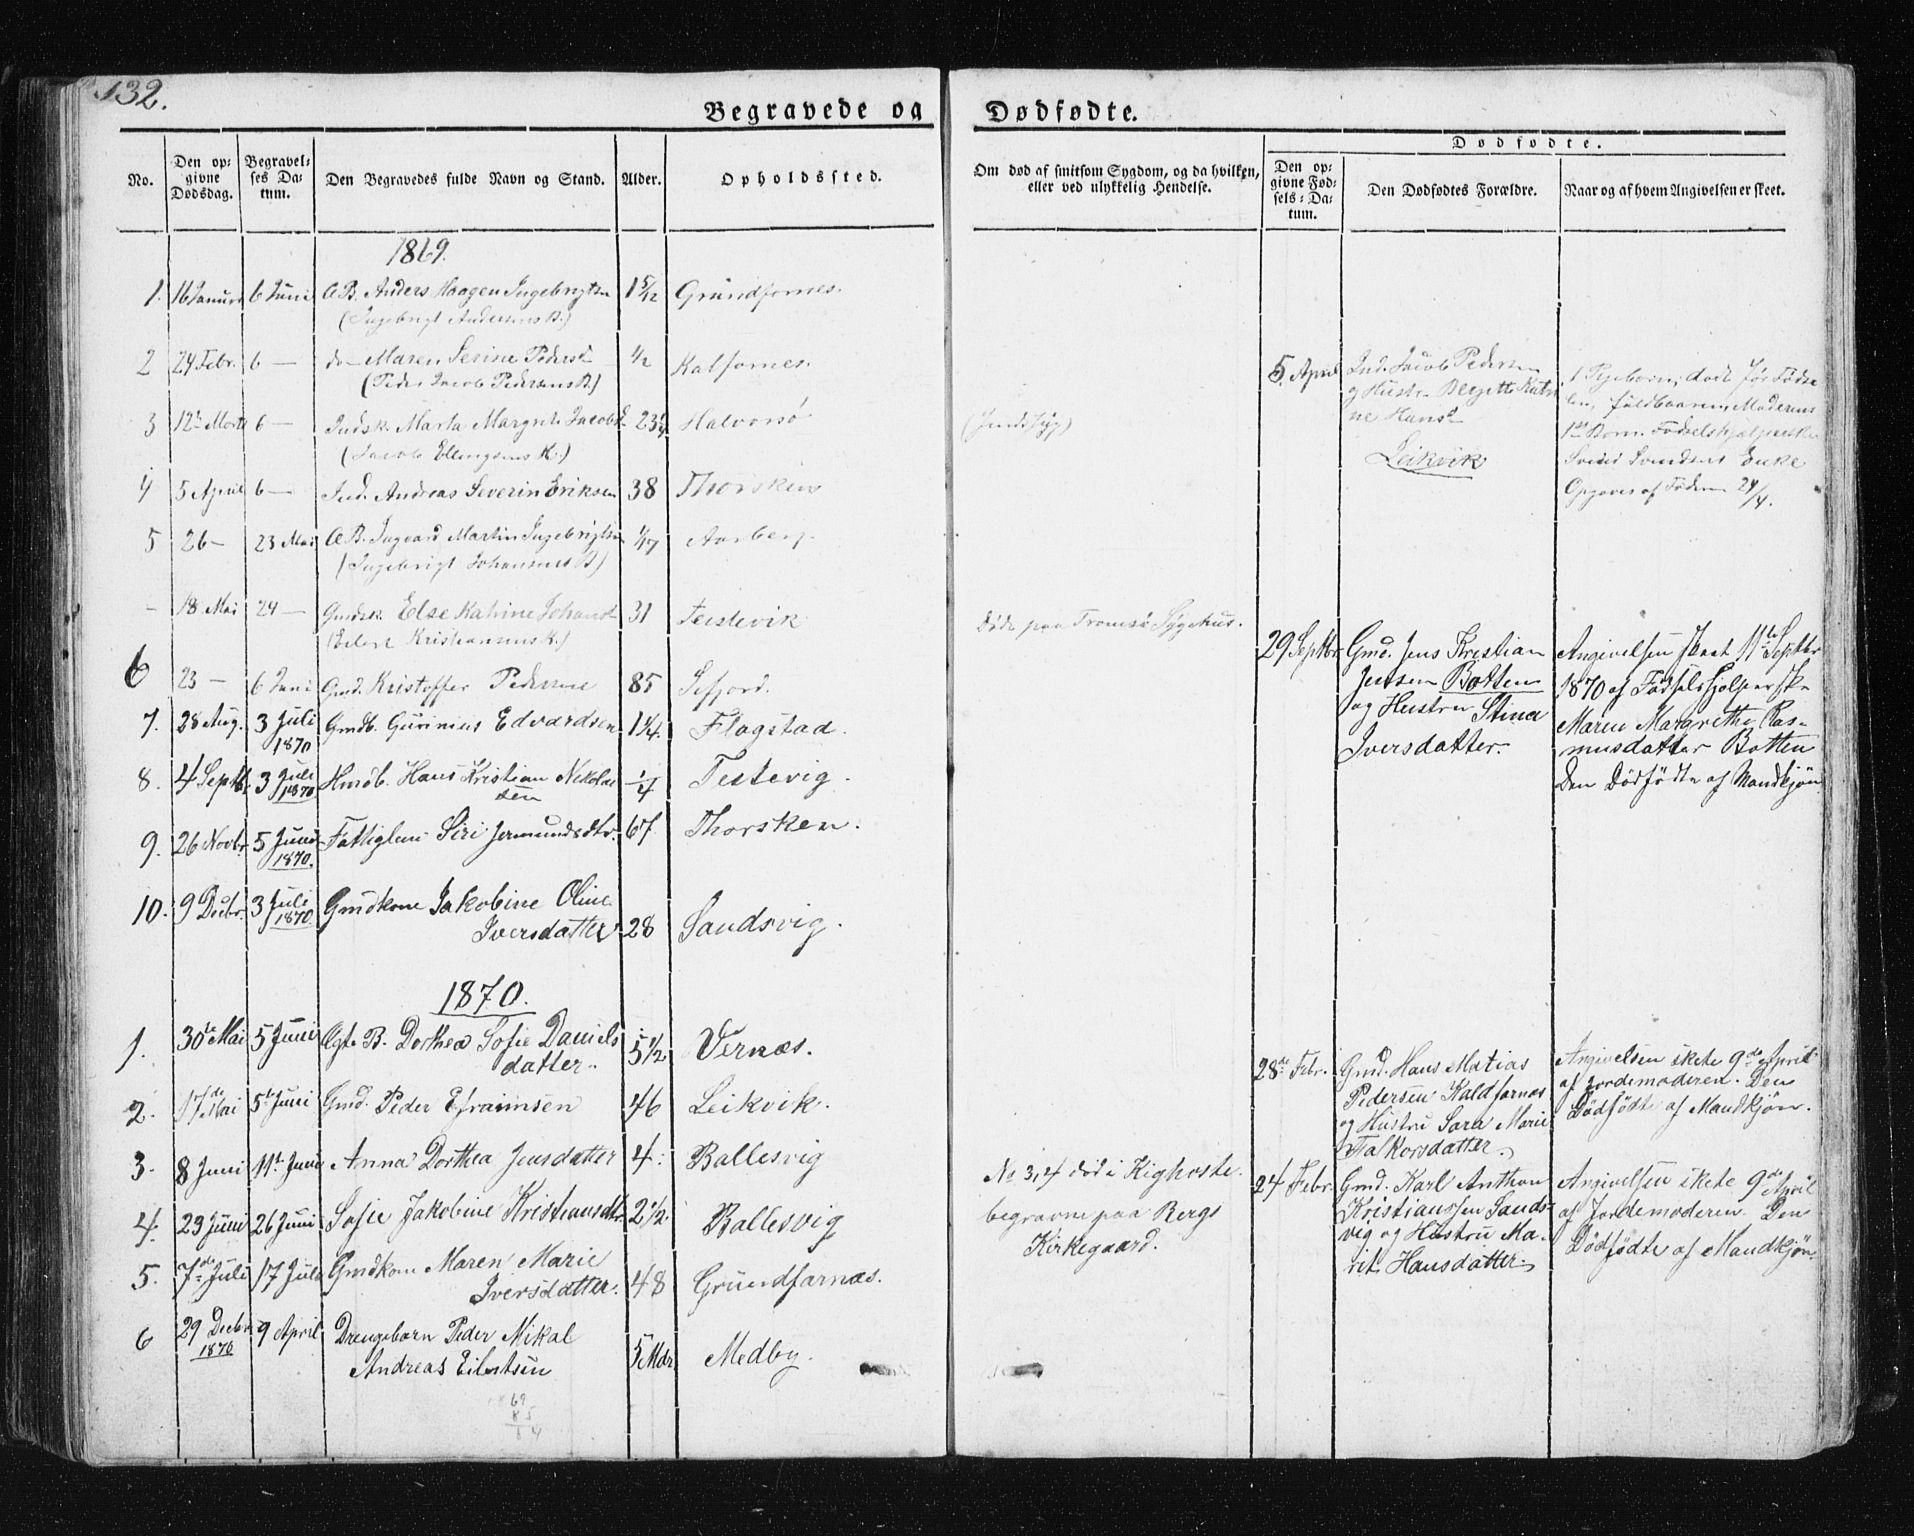 132.
Begravede og Dødfødte.
Dødfødte.
No.
Den opgivne Dødsdag.
Begravelses Datum.
Den Begravedes fulde Navn og Stand.
Alder.
Opholdssted.
Om død af smitsom Sygdom, og da hvilken, eller ved ulykkelig Hendelse.
Den opgivne Fødsels-Datum.
Den Dødfødtes Forældre.
Naar og af hvem Angivelsen er skeet.
1869.
1. 16 Januar 6 Juni Anders Haagen Ingebrigtsn 1 5/12 Grundfornes.
(Ingebrigt Andersens B.)
2 24 Febr. 6 — do— Maren Serine Pedersd 1/2 Kalfornes.
(Peder Jacob Pedersens B)
3 12te Marts 6 — Indsk. Marta Margrete Jacobsd Halvorsø
(Jacob Ellingsens K.)
4 5 April 6 — Ind. Andreas Severin Eriksen 38 Thorsken
5 26 — 23 Mai Ingvard Martin Ingebrigtsn Aarberg.
(Ingebrigt Johansens B)
- 18 Mai 24 — Gmdsk. Else Katrine Johansd 31 Teistevik Døde paa Tromsø Sygehus.
(Eilert Kristiansens K.)
6 23 — 6 Juni Gmd. Kristoffer Pedersen 85 Sifjord.
7. 28 Aug. 3 Juli 1870 Gmdb. Gurinius Edvardsen 1 1/4. Flagstad.
8. 4 Septb. 3 Juli 1870 Hmdb. Hans Kristian Nikolaisen 1/4 Testevig.
9. 26 Novbr. 5 Juni 1870. Fattiglem Siri Jermundsdtr. 67 Thorsken.
10. 9 Decbr. 3 Juli 1870. Gmdkone Jakobine Oline
Iversdatter 28 Sandsvig.
5 April Ind. Jacob Pedersen
og Hustr. Bergitte Katri
ne Hansd
Leikvik
1 Pigebarn, død før Fødse
len, fuldbaaren, Moderens
1ste Barn. Fødselshjælperske
Svendsens Enke
Opgaves af Faderen 24/4.
29 Septbr. Gmd. Jens Kristian
Jensen Botten
og Hustru Stina
Iversdatter.
Angivelsen skeet 11te Septbr
1870 af Fødselshjelperske
Maren Margrethe Ras-
musdatter Botten
Den Dödfödte af Mandkjön
1870.
1. 30te Mai 5 Juni Ægte B. Dorthea Sofie Daniels
datter. 5 1/2 Vernæs.
2. 17de Mai 5te Juni Gmd. Peder Efraimsen 46 Leikvik.
3. 8 Juni 11te Juni Anna Dorthea Jensdatter 4. Ballesvig
4. 23 Juni 26 Juni Sofie Jakobine Kristiansdtr. 2 1/2 Ballesvig
5. 7de Juli 17 Juli Gmdkone Maren Marie
Iversdatter. 48 Grundfarnæs.
6 29 Decbr 1870 9 April Drengebarn Peder Mikal
Andreas Eilertsen 5 Mdr Medby.
No 3, 4 död i Kighoste.
begravne paa Bergs
Kirkegaard.
28de Febr. Gmd. Hans Matias
Pedersen Kaldfarnæs
og Hustru Sara Marie
Falkorsdatter.
Angivelsen skete 9de April
af Jordemoderen. Den
Dödfödte af Mandkjön.
24 Febr. Gmd. Karl Anthon
Kristianssen Sands-
vig og Hustru Ma-
rit Hansdatter.
Angivelsen skete 9de April
af Jordemoderen. Den
Dödfödte af Mandkjön
69
85